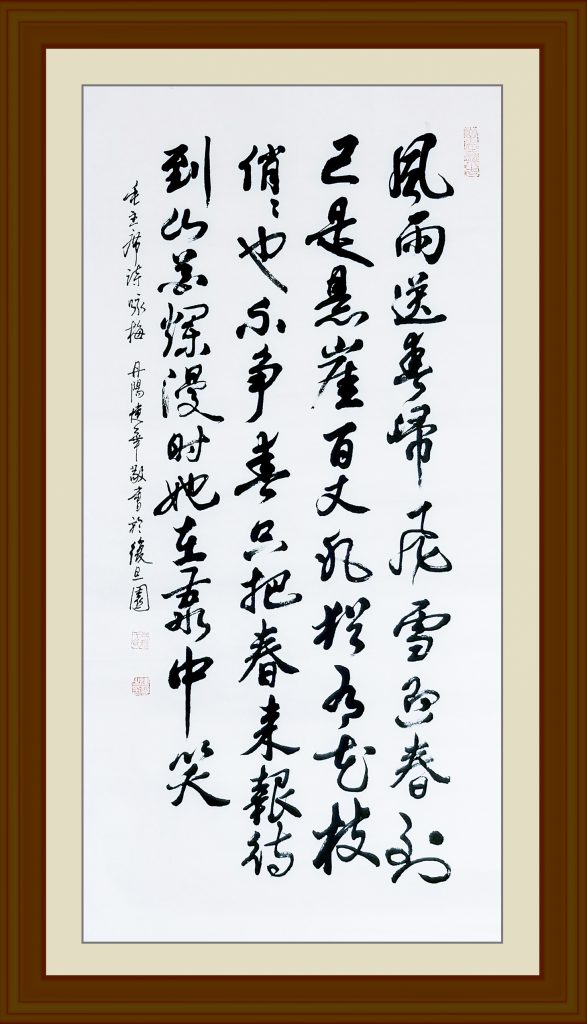 風雨送春歸飛雪迎春到
已是悬崖百丈冰猶有花枝
俏〻也不争春只把春来報待
到山花爛漫时她在叢中笑
毛主席诗咏梅 丹陽華敬書於復旦園